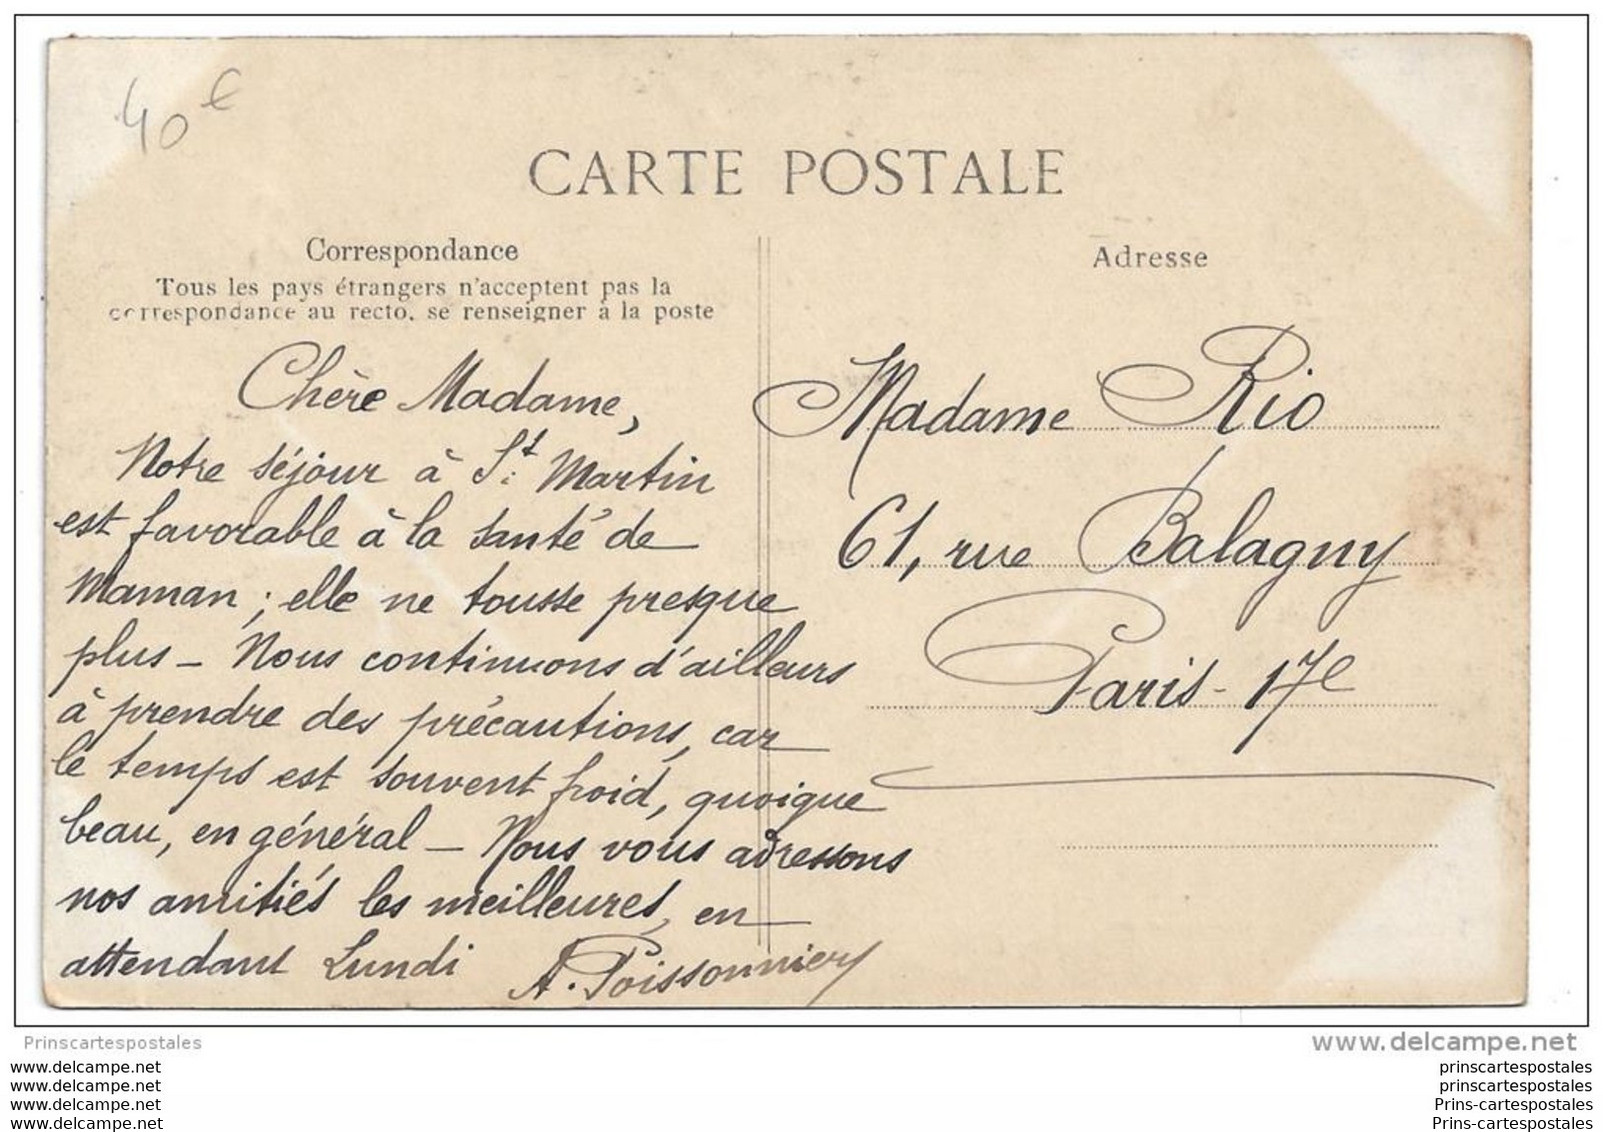 40 €
CARTE POSTALE
Correspondance
Tous les pays étrangers n'acceptent pas la
correspondance au recto, se renseigner à la poste
Chère Madame,
Notre séjour à St. Martin
est favorable à la santé de
Maman ; elle ne tousse presque
plus - Nous continuons d'ailleurs
à prendre des précautions, car
le temps est souvent froid, quoique
beau, en général - Nous vous adressons
nos amitiés les meilleures, en
attendant Lundi
A. Poissonnier
Adresse
Madame Rio
61, rue Balagny
Paris - 17e
Prinscartespostales
www.delcampe.net
www.delcampe.net
www.delcampe.net
www.delcampe.net
www.delcampe.net
prinscartespostales
prinscartespostales
Prins-cartespostales
Prins-cartespostales